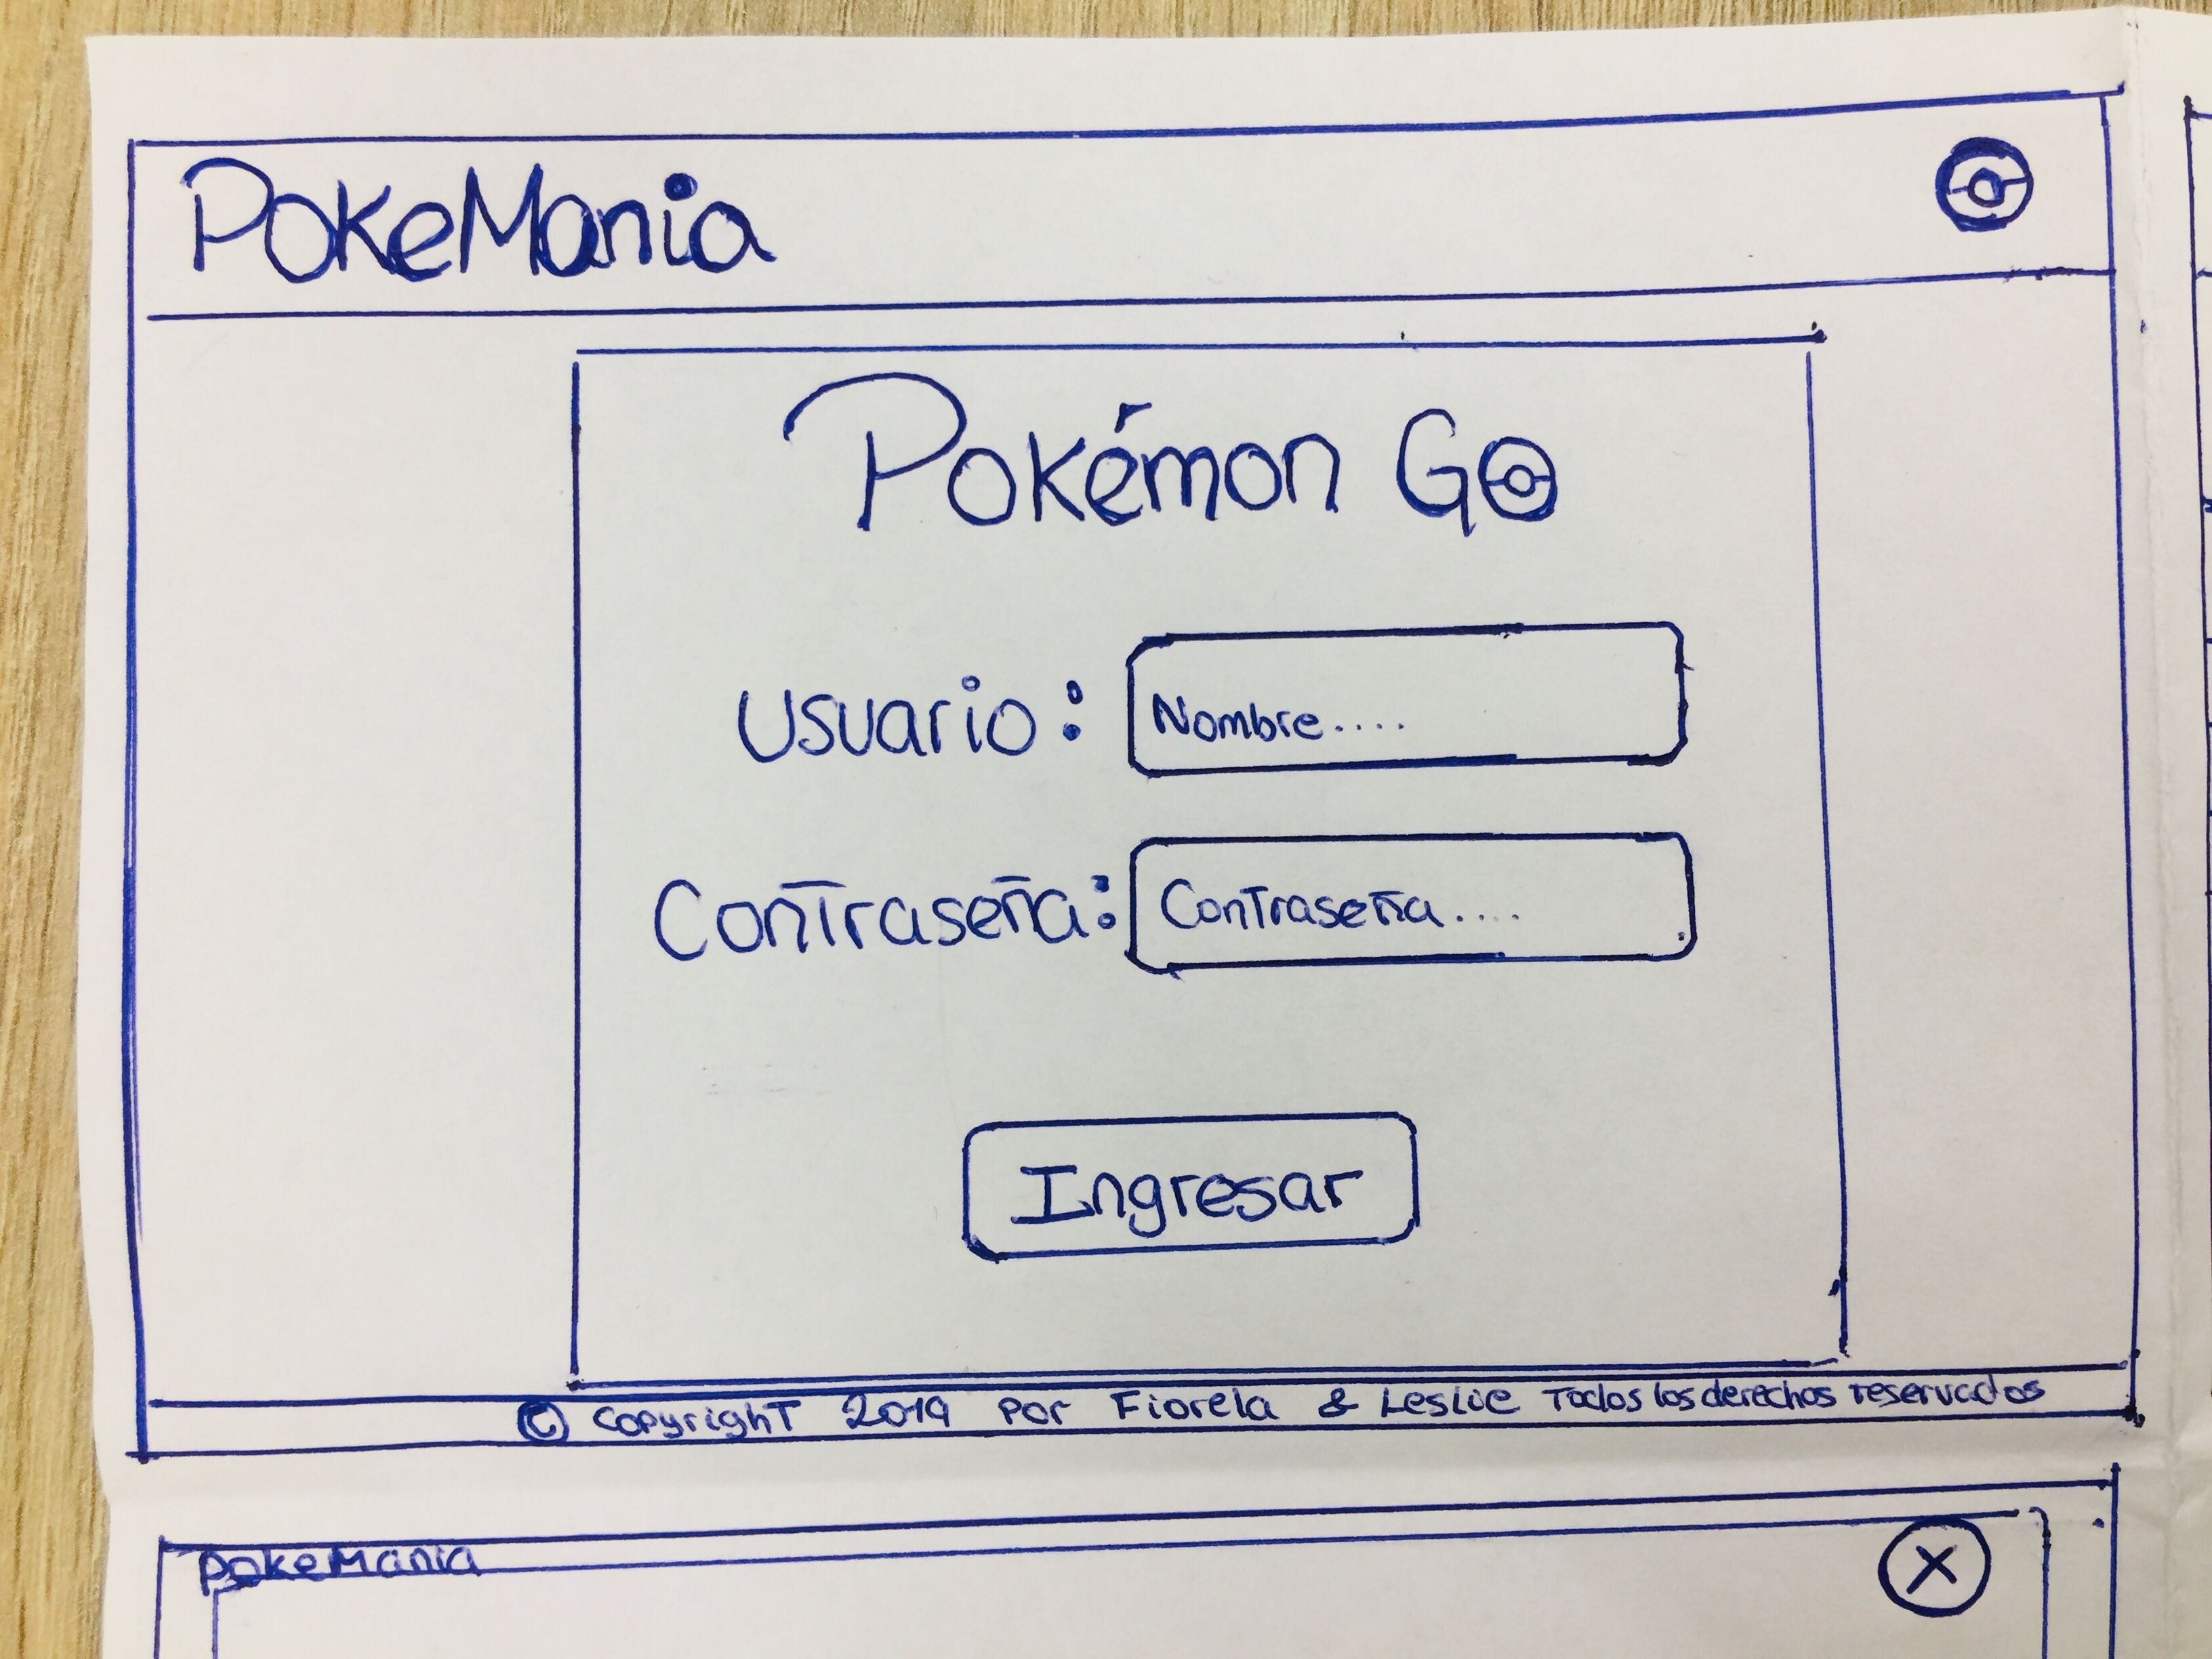 PokeMania
Pokémon GO
Usuario:
Nombre....
Contraseña:
Contraseña....
Ingresar
© Copyright 2019 por Fiorela & Leslie Todos los derechos reservados
PokeMania
X